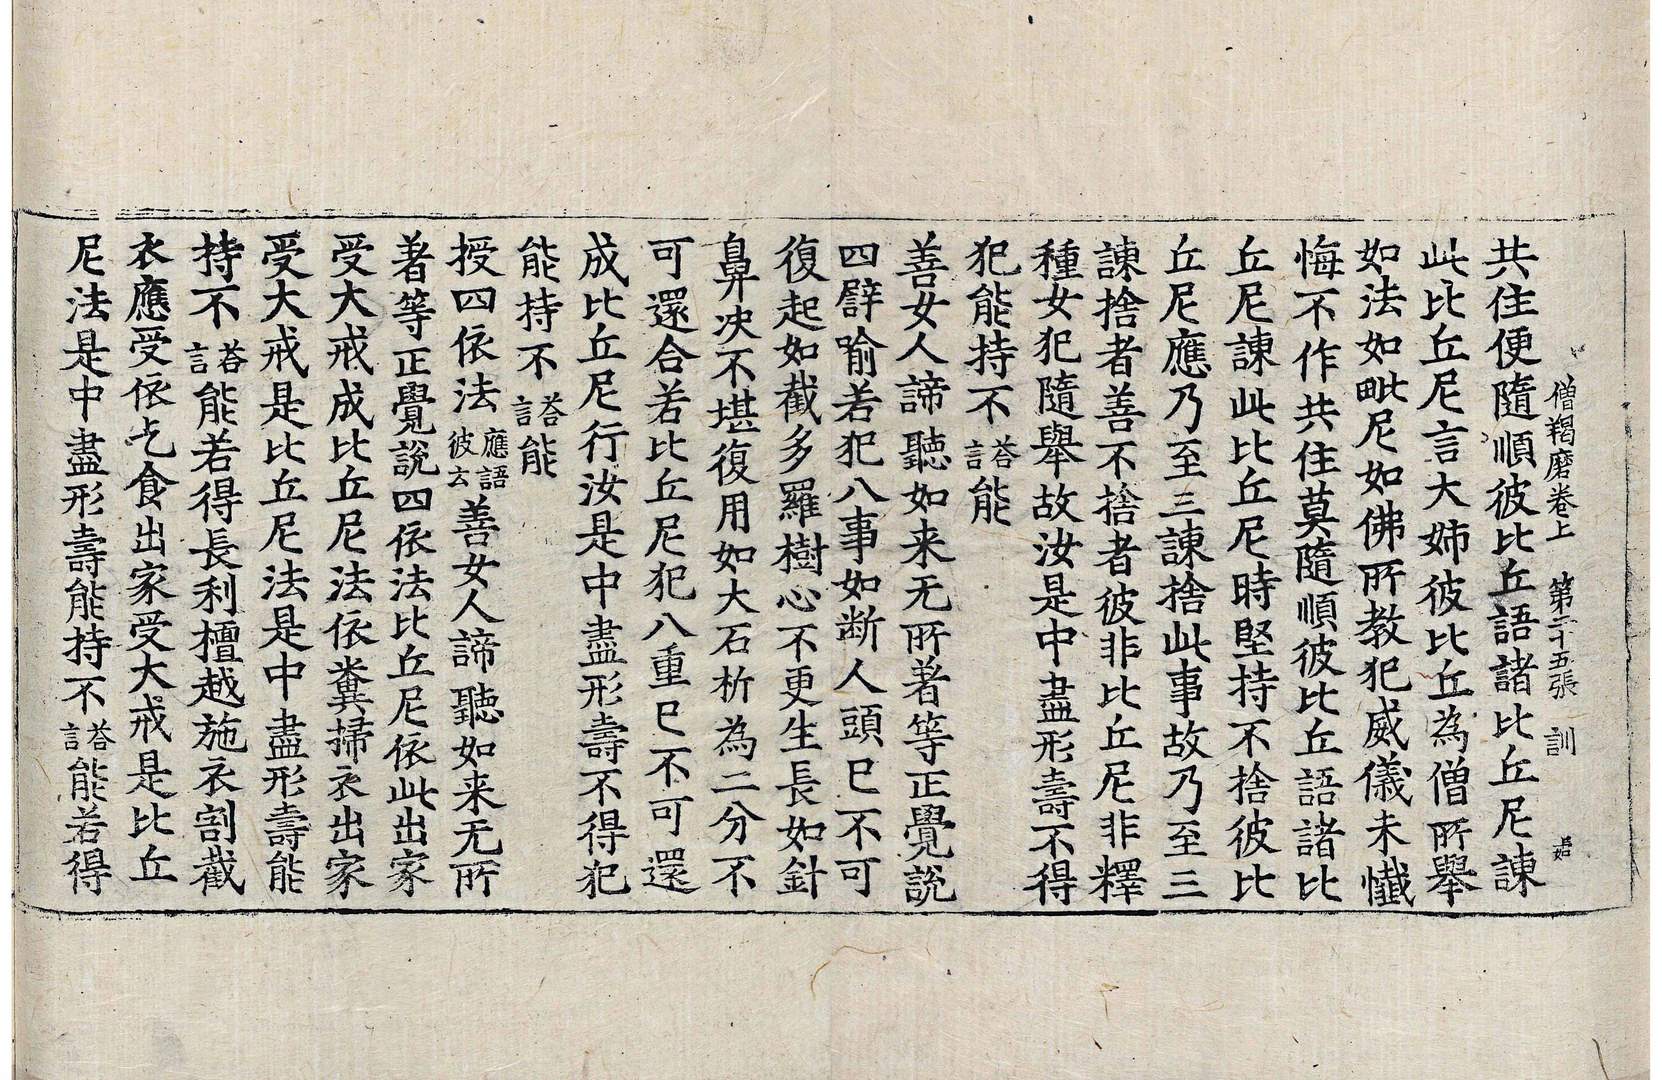 僧羯磨卷上　第二十五張　訓
共住便隨順彼比丘語諸比丘尼諫
此比丘尼言大姊彼比丘為僧所舉
如法如毗尼如佛所教犯威儀未懺
悔不作共住莫隨順彼比丘語諸比
丘尼諫此比丘尼時堅持不捨彼比
丘尼應乃至三諫捨此事故乃至三
諫捨者善不捨者彼非比丘尼非釋
種女犯隨舉故汝是中盡形壽不得
犯能持不答言能
善女人諦聽如来无所著等正覺說
四譬喻若犯八事如断人頭已不可
復起如截多羅樹心不更生長如針
鼻决不堪復用如大石析為二分不
可還合若比丘尼犯八重已不可還
成比丘尼行汝是中盡形壽不得犯
能持不答言能
授四依法應語彼云善女人諦聽如来无所
著等正覺說四依法比丘尼依此出家
受大戒成比丘尼法依糞掃衣出家
受大戒是比丘尼法是中盡形壽能
持不答言能若得長利檀越施衣割截
衣應受依乞食出家受大戒是比丘
尼法是中盡形壽能持不答言能若得